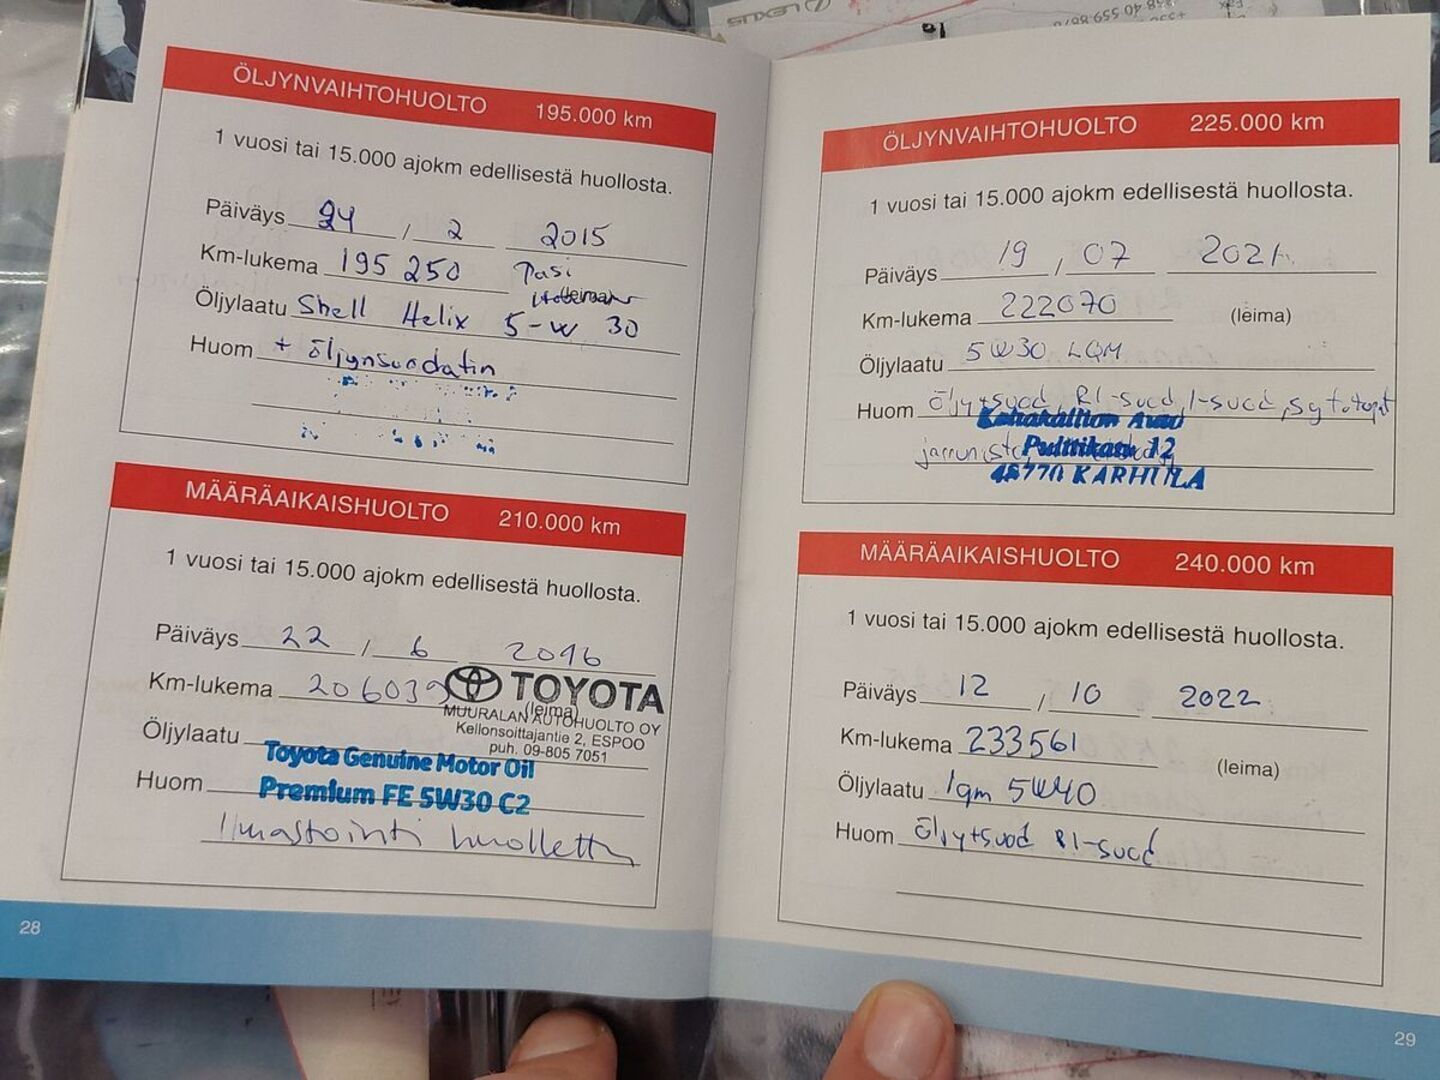 ÖLJYNVAIHTOHUOLTO 195.000 km
1 vuosi tai 15.000 ajokm edellisestä huollosta.
Päiväys 24 / 2 2015
Km-lukema 195 250 Pasi
(leima)
Öljylaatu Shell Helix 5-w 30
Huom + öljynsuodatin
MÄÄRÄAIKAISHUOLTO 210.000 km
1 vuosi tai 15.000 ajokm edellisestä huollosta.
Päiväys 22 / 6 2016
Km-lukema 206039 TOYOTA
(leima)
MUURALAN AUTOHUOLTO OY
Kellonsoittajantie 2, ESPOO
puh. 09-805 7051
Öljylaatu Toyota Genuine Motor Oil
Huom Premium FE 5W30 C2
Ilmastointi huollettu
28
ÖLJYNVAIHTOHUOLTO 225.000 km
1 vuosi tai 15.000 ajokm edellisestä huollosta.
Päiväys 19 / 07 2021
Km-lukema 222070 (leima)
Öljylaatu 5W30 LQM
Huom öljy+suod, RI-suod, I-suod, sytytulpat
Puittikatu 12
48770 KARHULA
MÄÄRÄAIKAISHUOLTO 240.000 km
1 vuosi tai 15.000 ajokm edellisestä huollosta.
Päiväys 12 / 10 2022
Km-lukema 233561 (leima)
Öljylaatu lqm 5W40
Huom öljy+suod RI-suod
29
LEXUS